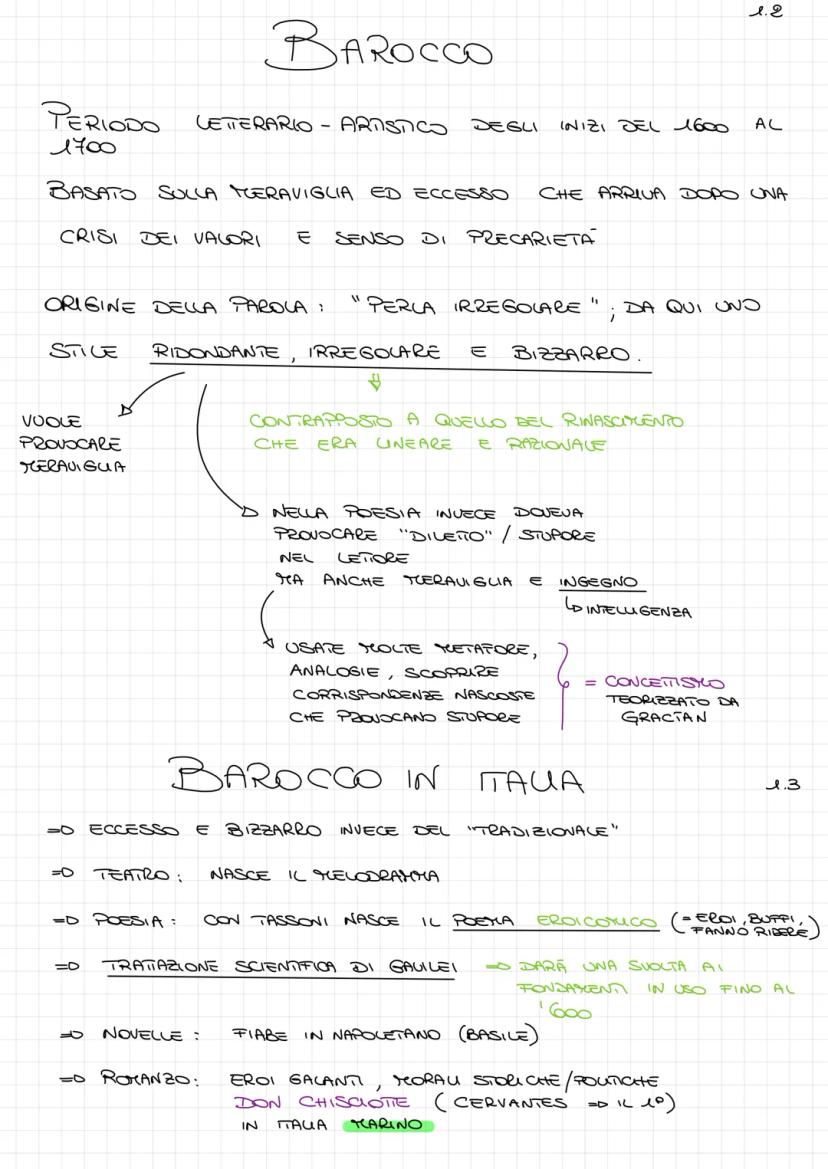 1.2
BAROCCO
PERIODO LETTERARIO - ARTISTICO DEGLI INIZI DEL 1600 AL
1700
BASATO SULLA MERAVIGLIA ED ECCESSO CHE ARRIVA DOPO UNA
CRISI DEI VALORI E SENSO DI PRECARIETÀ
ORIGINE DELLA PAROLA: "PERLA IRREGOLARE"; DA QUI UNO
STILE RIDONDANTE, IRREGOLARE E BIZZARRO.
VUOLE
PROVOCARE
MERAVIGLIA
CONTRAPPOSTO A QUELLO DEL RINASCIMENTO
CHE ERA LINEARE E RAZIONALE
NELLA POESIA INVECE DOVEVA
PROVOCARE "DILETTO" / STUPORE
NEL LETTORE
MA ANCHE MERAVIGLIA E INGEGNO
INTELLIGENZA
USATE MOLTE METAFORE,
ANALOGIE, SCOPRIRE
CORRISPONDENZE NASCOSTE
CHE PROVOCANO STUPORE
= CONCETTISMO
TEORIZZATO DA
GRACIAN
BAROCCO IN ITALIA
1.3
=D ECCESSO E BIZZARRO INVECE DEL "TRADIZIONALE"
=D TEATRO: NASCE IL MELODRAMMA
=D POESIA: CON TASSONI NASCE IL POEMA EROICOMICO (= EROI, BUFFI,
FANNO RIDERE)
=D TRATTAZIONE SCIENTIFICA DI GALILEI =D DARÀ UNA SVOLTA AI
FONDAMENTI IN USO FINO AL
'600
=D NOVELLE: FIABE IN NAPOLETANO (BASILE)
=D ROMANZO: EROI GALANTI, MORALI STORICHE/POLITICHE
DON CHISCIOTTE (CERVANTES =D IL 1°)
IN ITALIA MARINO